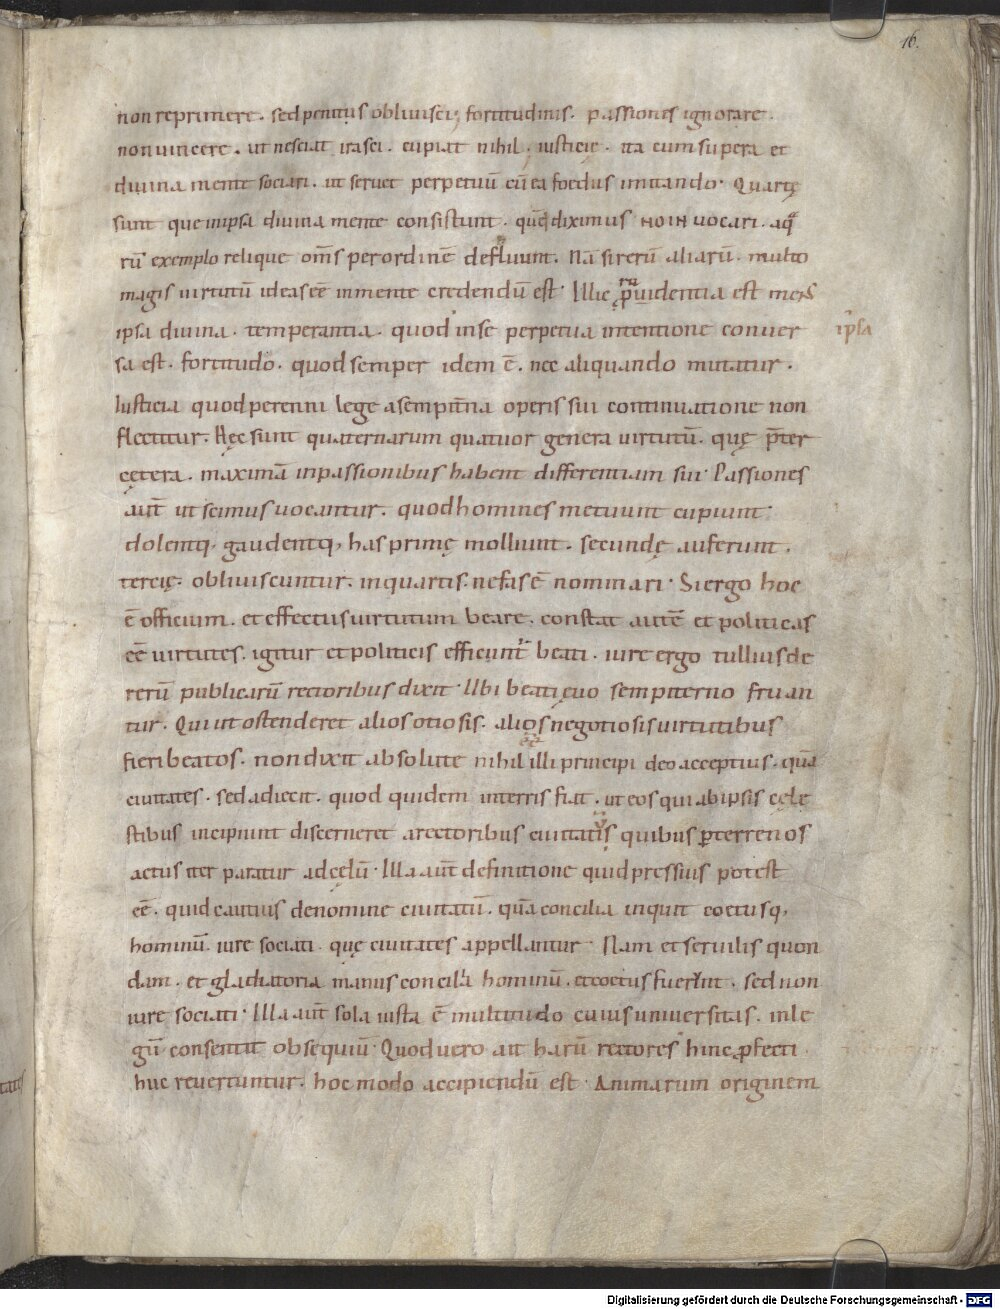 16.
non reprimere. sed penitus obliuisci; fortitudinis. passiones ignorare.
non uincere. ut nesciat irasci. cupiat nihil. iusticię. ita cum supera et
diuina mente sociari. ut seruet perpetuū cū ea foedus imitando. Quartę
sunt que in ipsa diuina mente consistunt. quā diximus NOIN uocari. a quo
rū exemplo relique om̄s per ordinē defluunt. Nā si rerū aliarū. multo
magis uirtutū ideas eē in mente credendū est. Illic ꝓuidentia est mens
ipsa diuina. temperantia. quod in se perpetua intentione conuer
ip̄sa
sa est. fortitudo. quod semper idem ē. nec aliquando mutatur.
Iusticia quod perenni lege a sempit̄na operis sui continuatione non
flectitur. Hęc sunt quaternarum quatuor genera uirtutū. quę p̄ter
cętera. maximā in passionibus habent differentiam sui. Passiones
aut̄ ut scimus uocantur. quod homines metuunt cupiunt.
dolentq, gaudentq, has primę molliunt. secundę auferunt.
tercię. obliuiscuntur. in quartis. nefas ē nominari. Si ergo hoc
ē officium. et effectus uirtutum beare. constat autē et politicas
eē uirtutes. igitur et politicis efficiunt̄ beati. iure ergo tullius de
rerū publicarū rectoribus dixit. Ubi beati ęuo sempiterno fruan
tur. Qui ut ostenderet alios otiosis. alios negotiosis uirtutibus
fieri beatos. non dixit absolute nihil illi principi deo acceptius. quā
ciuitates. sed adiecit. quod quidem in terris fiat. ut eos qui ab ipsis cęlę
stibus incipiunt discerneret a rectoribus ciuitatis quibus ꝑ terrenos
actus iter paratur ad cęlū. Illa aut̄ definitione quid pressius potest
eē. quid cautius de nomine ciuitatū. quā concilia inquit coetusq,
hominū. iure sociati. quę ciuitates appellantur. Nam et seruilis quon
dam. et gladiatoria manus concilia hominū. et coetus fuerunt. sed non
iure sociati. Illa aut̄ sola iusta ē multitudo cuius uniuersitas. in le
gū consentit obsequiū. Quod uero ait harū rectores hinc ꝓfecti
huc reuertuntur. hoc modo accipiendū est. Animarum originem
Digitalisierung gefördert durch die Deutsche Forschungsgemeinschaft - DFG